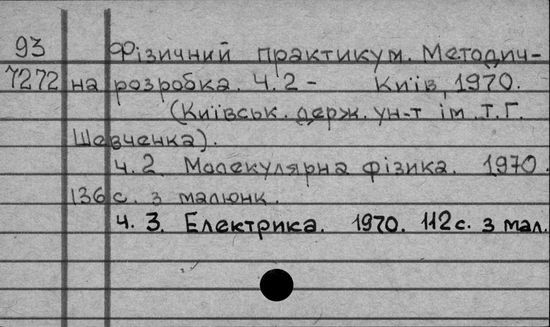 93 Фізичний практикум. Методич-
7272 на розробка. Ч.2 - Київ, 1970.
(Київськ. держ. ун-т ім. Т.Г.
Шевченка).
Ч.2. Молекулярна фізика. 1970.
136 с. з малюнк.
Ч. 3. Електрика. 1970. 112 с. з мал.